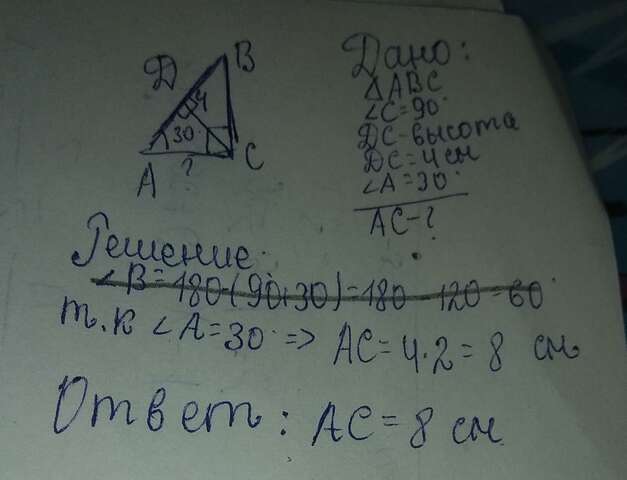 B
D
4
30
A
?
C
Дано:
△ABC
∠C=90°
DC-высота
DC=4см
∠A=30°
AC-?
Решение:
∠B=180-(90+30)=180-120=60°
т.к ∠A=30° => AC=4·2=8 см
Ответ: AC=8 см